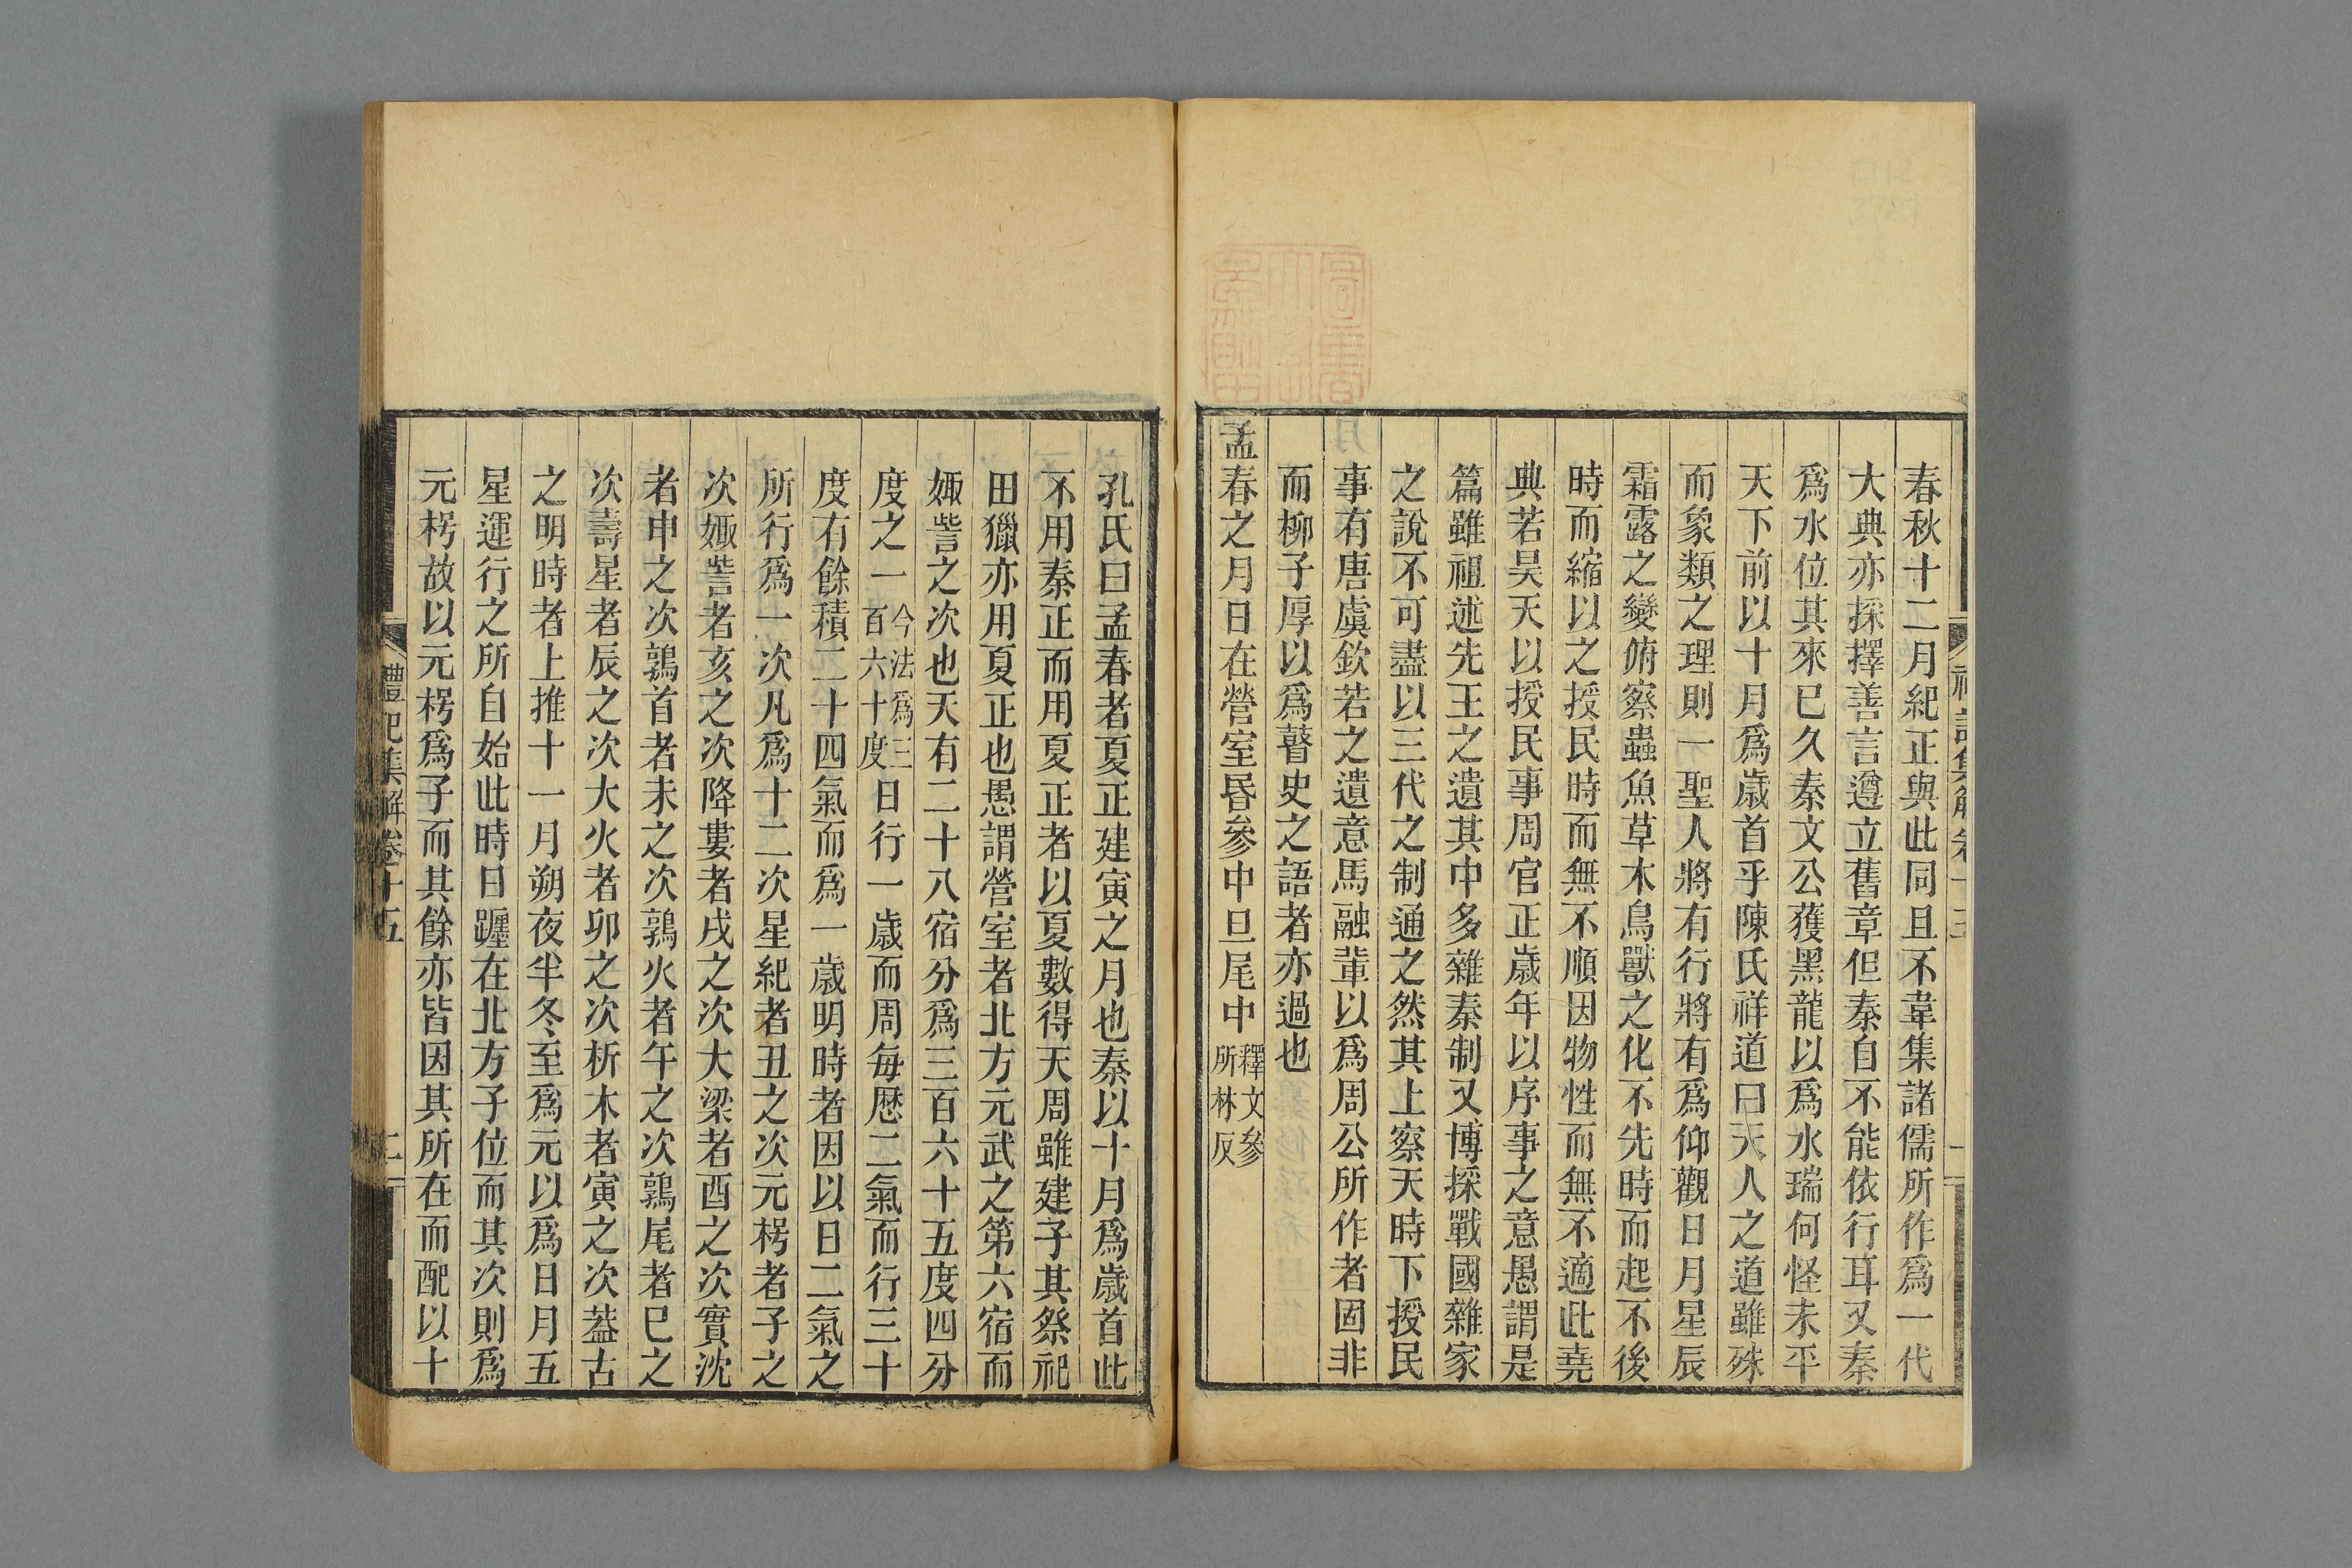 春秋十二月紀正與此同且不韋集諸儒所作爲一代
大典亦採擇善言遵立舊章但秦自不能依行耳又秦
爲水位其來已久秦文公獲黑龍以爲水瑞何怪未平
天下前以十月爲歲首乎陳氏祥道曰天人之道雖殊
而象類之理則一聖人將有行將有爲仰觀日月星辰
霜露之變俯察蟲魚草木鳥獸之化不先時而起不後
時而縮以之授民時而無不順因物性而無不適此堯
典若昊天以授民事周官正歲年以序事之意愚謂是
篇雖祖述先王之遺其中多雜秦制又博採戰國雜家
之說不可盡以三代之制通之然其上察天時下授民
事有唐虞欽若之遺意馬融輩以爲周公所作者固非
而柳子厚以爲瞽史之語者亦過也
孟春之月日在營室昏參中旦尾中釋文參所林反
孔氏曰孟春者夏正建寅之月也秦以十月爲歲首此
不用秦正而用夏正者以夏數得天周雖建子其祭祀
田獵亦用夏正也愚謂營室者北方元武之第六宿而
娵訾之次也天有二十八宿分爲三百六十五度四分
度之一今法爲三百六十度日行一歲而周每歷二氣而行三十
度有餘積二十四氣而爲一歲明時者因以日二氣之
所行爲一次凡爲十二次星紀者丑之次元枵者子之
次娵訾者亥之次降婁者戌之次大梁者酉之次實沈
者申之次鶉首者未之次鶉火者午之次鶉尾者巳之
次壽星者辰之次大火者卯之次析木者寅之次蓋古
之明時者上推十一月朔夜半冬至爲元以爲日月五
星運行之所自始此時日躔在北方子位而其次則爲
元枵故以元枵爲子而其餘亦皆因其所在而配以十
禮記集解卷十五
二